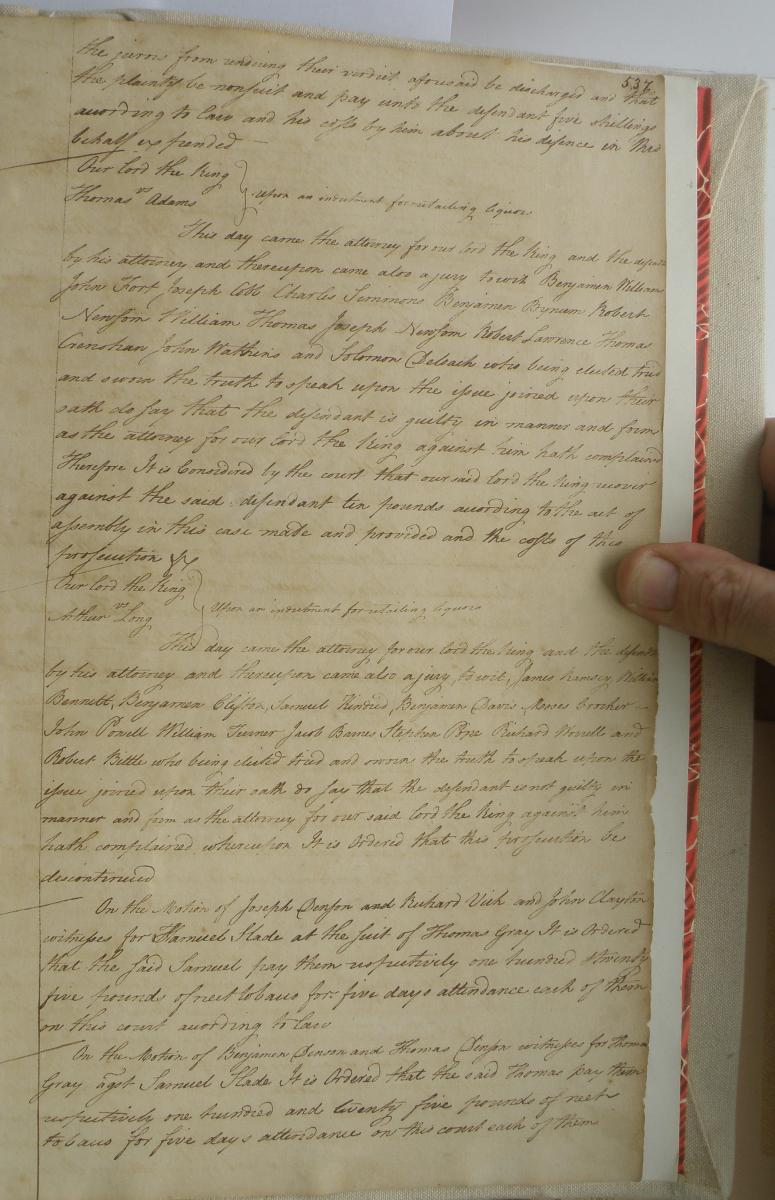 537.
the jurors from rendring their verdict aforesaid be discharged and that
the plaintif be nonsuit and pay unto the defendant five shillings
according to law and his costs by him about his defence in this
behalf expended
Our lord the King
vs
Thomas Adams
Upon an indictment for retailing liquor
This day came the attorney for our lord the King and the defend
by his attorney and thereupon came also a jury to wit Benjamin Williams
John Fort Joseph Cobb Charles Simmons Benjamin Bynum Robert
Newsom William Thomas Joseph Newsom Robert Lawrence Thomas
Crenshaw John Watkins and Solomon Deloach who being elected tried
and sworn the truth to speak upon the issue joined upon their
oath do say that the defendant is guilty in manner and form
as the attorney for our lord the King against him hath complained
Therefore It is Considered by the court that our said lord the King recover
against the said defendant ten pounds according to the act of
assembly in this case made and provided and the costs of this
prosecution
Our lord the King
vs
Arthur Long
Upon an indictment for retailing liquors
This day came the attorney for our lord the King and the defend
by his attorney and thereupon came also a jury, to wit, James Ramsey William
Bennett, Benjamen Clifton, Samuel Kindred, Benjamen Davis Moses
John Powell William Turner Jacob Barnes Stephen Pope Richard Norvell and
Robert Bittle who being elected tried and sworn the truth to speak upon the
issue joined upon their oath do say that the defendant is not guilty in
manner and form as the attorney for our said lord the King against him
hath complained whereupon It is Ordered that this prosecution be
discontinued
On the Motion of Joseph Denson and Richard Vick and John Clayton
witnesses for Samuel Slade at the suit of Thomas Gray It is Ordered
that the said Samuel pay them respectively one hundred & twenty
five pounds of neet tobacco for five days attendance each of them
on this court according to law
On the Motion of Benjamen Denson and Thomas Denson witnesses for Thomas
Gray agst Samuel Slade It is Ordered that the said Thomas pay them
respectively one hundred and twenty five pounds of neet
tobacco for five days attendance on this court each of them